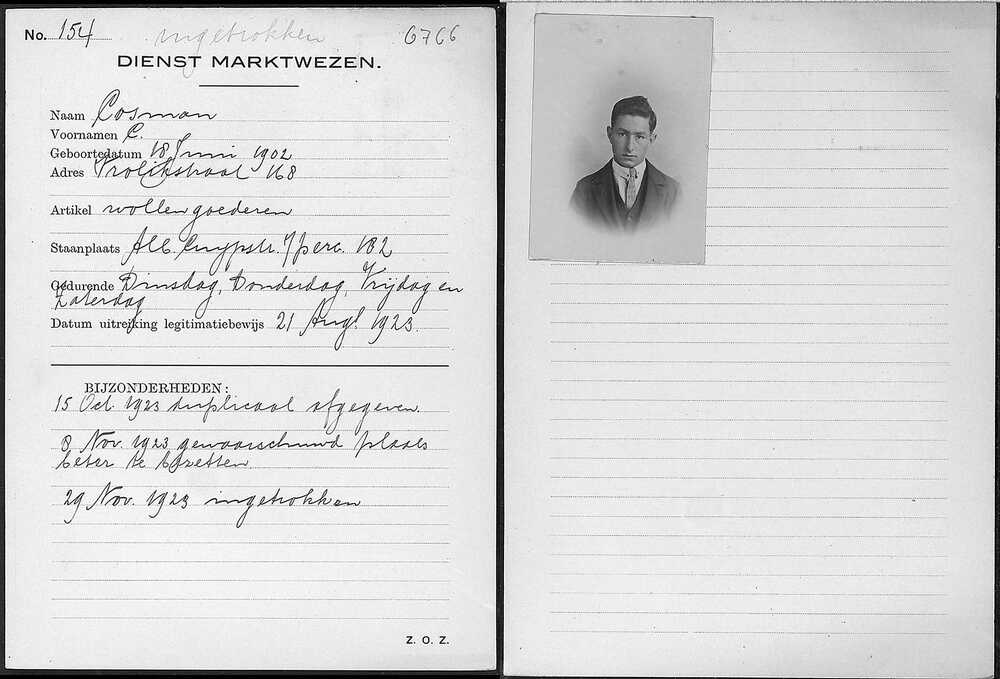 No. 154 ingetrokken 6766
DIENST MARKTWEZEN.
Naam Cosman
Voornamen C.
Geboortedatum 18 Juni 1902
Adres Vrolikstraat 168
Artikel wollen goederen
Staanplaats Alb. Cuypstr. 7 perc. 182
Gedurende Dinsdag, Donderdag, Vrijdag en
Zaterdag
Datum uitreiking legitimatiebewijs 21 Augs. 1923.
BIJZONDERHEDEN:
15 Oct. 1923 duplicaat afgegeven.
8 Nov. 1923 gewaarschuwd plaats
beter te bezetten.
29 Nov. 1923 ingetrokken
Z. O. Z.